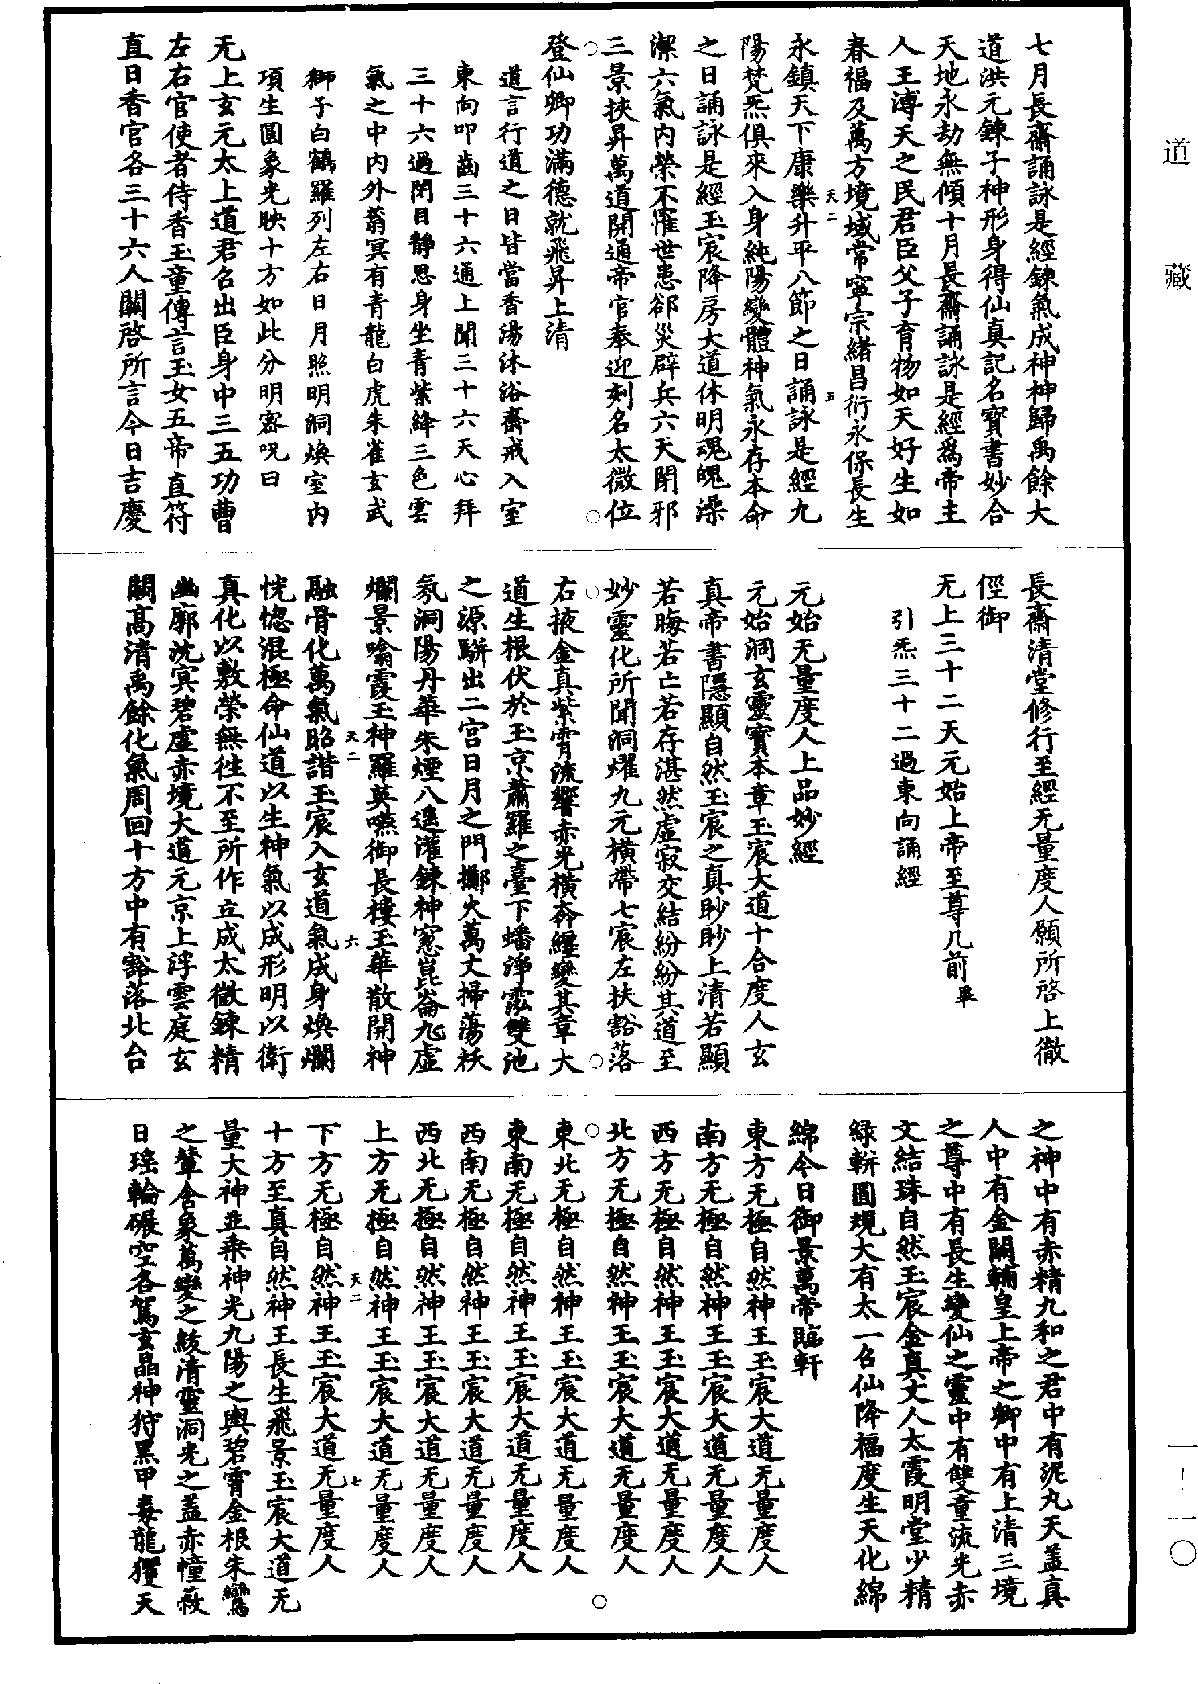 道藏
一-一〇
七月長齋誦詠是經鍊氣成神神歸禹餘大
道洪元鍊子神形身得仙真記名寶書妙合
天地永劫無傾十月長齋誦詠是經爲帝主
人王溥天之民君臣父子育物如天好生如
春福及萬方境域常寧宗緒昌衍永保長生
天二 五
永鎮天下康樂升平八節之日誦詠是經九
陽梵炁俱來入身純陽變體神氣永存本命
之日誦詠是經玉宸降房大道休明魂魄澡
潔六氣内榮不罹世患郤災辟兵六天閉邪
三景挾昇萬道開通帝官奉迎刻名太微位
登仙卿功滿德就飛昇上清
道言行道之日皆當香湯沐浴齋戒入室
東向叩齒三十六通上聞三十六天心拜
三十六過閉目靜思身坐青紫絳三色雲
氣之中内外蓊冥有青龍白虎朱雀玄武
獅子白鶴羅列左右日月照明洞煥室内
項生圓象光映十方如此分明密呪曰
无上玄元太上道君召出臣身中三五功曹
左右官使者侍香玉童傳言玉女五帝直符
直日香官各三十六人關啓所言今日吉慶
長齋清堂修行至經无量度人願所啓上徹
徑御
无上三十二天元始上帝至尊几前畢
引炁三十二過東向誦經
元始无量度人上品妙經
元始洞玄靈寶本章玉宸大道十合度人玄
真帝書隱顯自然玉宸之真眇眇上清若顯
若晦若亡若存湛然虛寂交結紛紛其道至
妙靈化所聞洞耀九元横帶七宸左扶豁落
右掖金真紫霄流響赤光横奔經變其章大
道生根伏於玉京蕭羅之臺下蟠淨霐雙池
之源駢出二宮日月之門擲火萬丈掃蕩袄
氛洞陽丹華朱煙八逸灌鍊神寃崑崙九虛
爛景噏霞玉神羅英嚥御長樓玉華散開神
融骨化萬氣昭諧玉宸入玄道氣成身煥爛
天二 六
恍惚混極命仙道以生神氣以成形明以衛
真化以敷榮無往不至所作立成太微鍊精
幽廓沈冥碧虛赤境大道元京上浮雲庭玄
關高清禹餘化氣周回十方中有豁落北台
之神中有赤精九和之君中有泥丸天蓋真
人中有金闕輔皇上帝之卿中有上清三境
之尊中有長生變仙之靈中有雙童流光赤
文結珠自然玉宸金真丈人太霞明堂少精
緑軿圓規大有太一召仙降福度生天化綿
綿今日御景萬帝臨軒
東方无極自然神王玉宸大道无量度人
南方无極自然神王玉宸大道无量度人
西方无極自然神王玉宸大道无量度人
北方无極自然神王玉宸大道无量度人
東北无極自然神王玉宸大道无量度人
東南无極自然神王玉宸大道无量度人
西南无極自然神王玉宸大道无量度人
西北无極自然神王玉宸大道无量度人
上方无極自然神王玉宸大道无量度人
天二 七
下方无極自然神王玉宸大道无量度人
十方至真自然神王長生飛景玉宸大道无
量大神並乘神光九陽之輿碧霄金根朱鸞
之輦含象萬變之綾清靈洞光之蓋赤幢蔽
日瑶輪碾空各駕玄晶神狩黑甲毒龍玃天